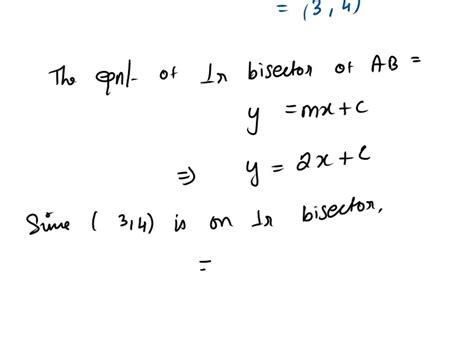 = (3, 4)
The eqn/- of ⊥r bisector of AB =
y = mx + c
⇒ y = 2x + c
Sine ( 3,4) is on ⊥r bisector,
=